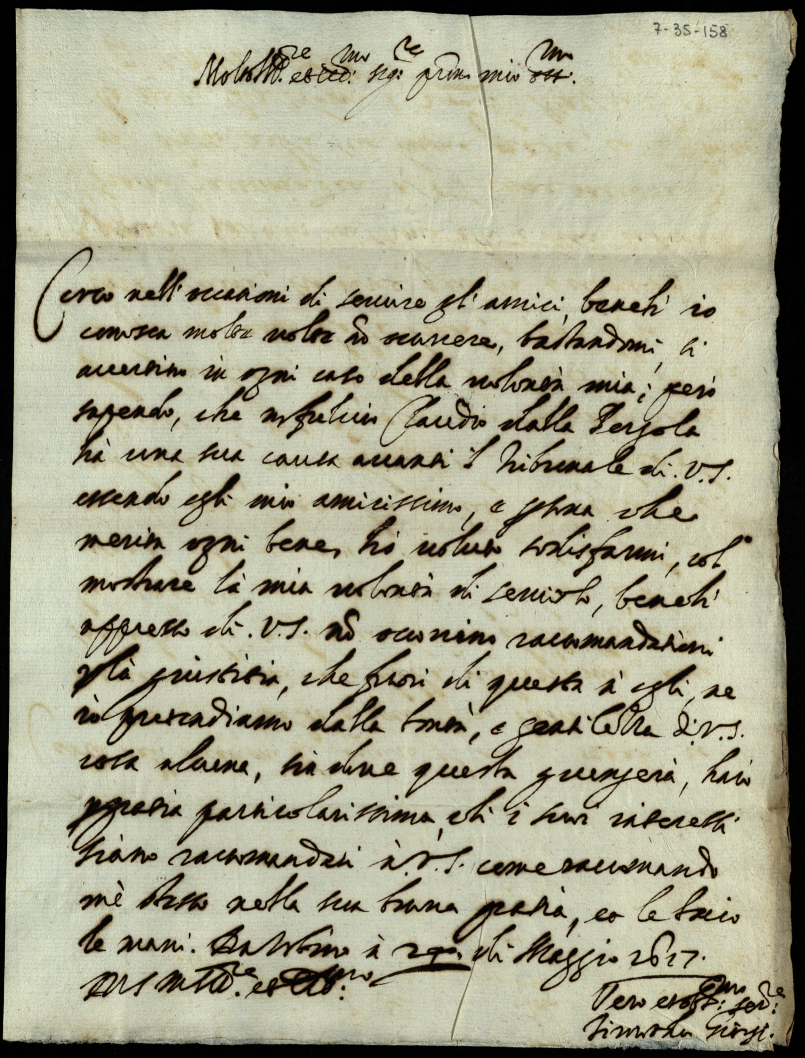 7-35-158
Molto Ill.re et ecc.mo sig.re pron mio oss.mo
Cerco nell'occasioni di servire gli amici, benchi io
conosca molte volte nō occorrere, bastandomi, si
accertino in ogni caso della volontà mia; però
sapendo, che Claudio dalla Pergola
hà una sua causa avanti il Tribunale di V.S.
essendo egli mio amicissimo, e che
merita ogni bene, hò voluto sodisfarmi, col
mostrare la mia volontà di servirlo, benchi
appresso di V.S. nō occorrino raccomandationi
la giustitia, che fuori di questa nè egli, ne
io pretendiamo dalla bontà, e gentilezza di V.S.
cosa alcuna, sin dove questa giungerà, havrò
gratia particolarissima, chi i suoi interessi
siano raccomandati à V.S. come raccomando
mè stesso nella sua buona gratia, et le bacio
le mani. Da Urbino à di Maggio 1617.
D V S M Ill.re et ecc.mo
Ser.re
Giorgi.